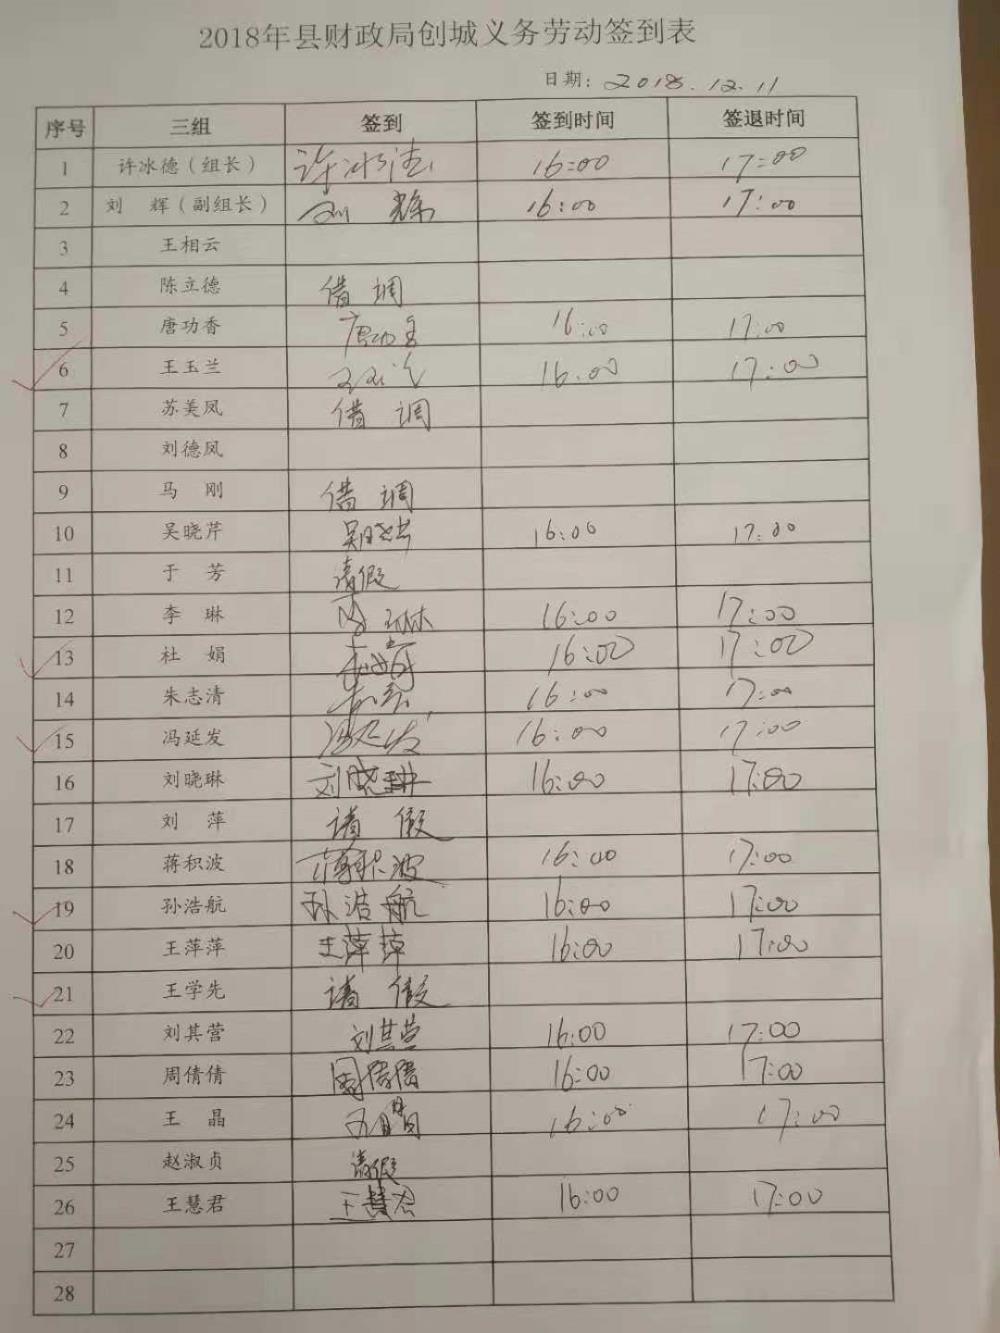 2018年县财政局创城义务劳动签到表
日期: 2018.12.11
序号 三组 签到 签到时间 签退时间
1 许冰德（组长） 许冰德 16:00 17:00
2 刘 辉（副组长） 刘 辉 16:00 17:00
3 王相云
4 陈立德 借调
5 唐功香 唐功香 16:00 17:00
6 王玉兰 王玉兰 16:00 17:00
7 苏美凤 借调
8 刘德凤
9 马 刚 借调
10 吴晓芹 吴晓芹 16:00 17:00
11 于 芳 请假
12 李 琳 16:00 17:00
13 杜 娟 16:00 17:00
14 朱志清 16:00 17:00
15 冯延发 冯延发 16:00 17:00
16 刘晓琳 刘晓琳 16:00 17:00
17 刘 萍 请假
18 蒋积波 蒋积波 16:00 17:00
19 孙浩航 孙浩航 16:00 17:00
20 王萍萍 王萍萍 16:00 17:00
21 王学先 请假
22 刘其营 刘其营 16:00 17:00
23 周倩倩 周倩倩 16:00 17:00
24 王 晶 16:00 17:00
25 赵淑贞 请假
26 王慧君 王慧君 16:00 17:00
27
28